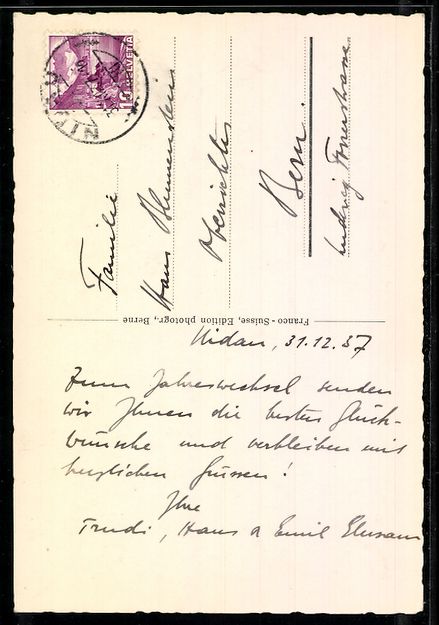 HELVETIA
10
NIDAU
Familie
Hans Blumenstein
Oberrichter
Bern
Ludwig Forrerstrasse
Franco-Suisse, Edition photogr., Berne
Nidau, 31.12.37
Zum Jahreswechsel senden
wir Ihnen die besten Glück-
wünsche und verbleiben mit
herzlichen Grüssen!
Ihre
Trudi, Hans & Emil